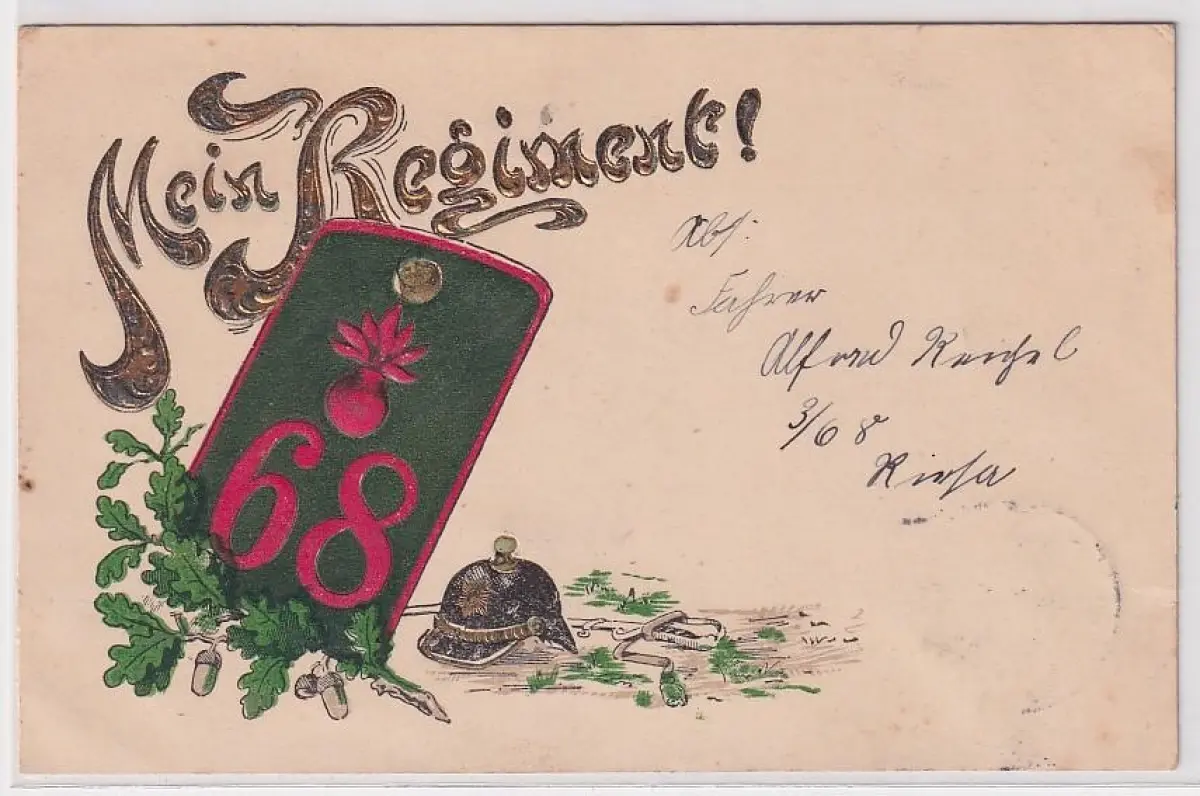 Mein Regiment!
68
Abs:
Fahrer
Alfred Reichel
3/68
Riesa